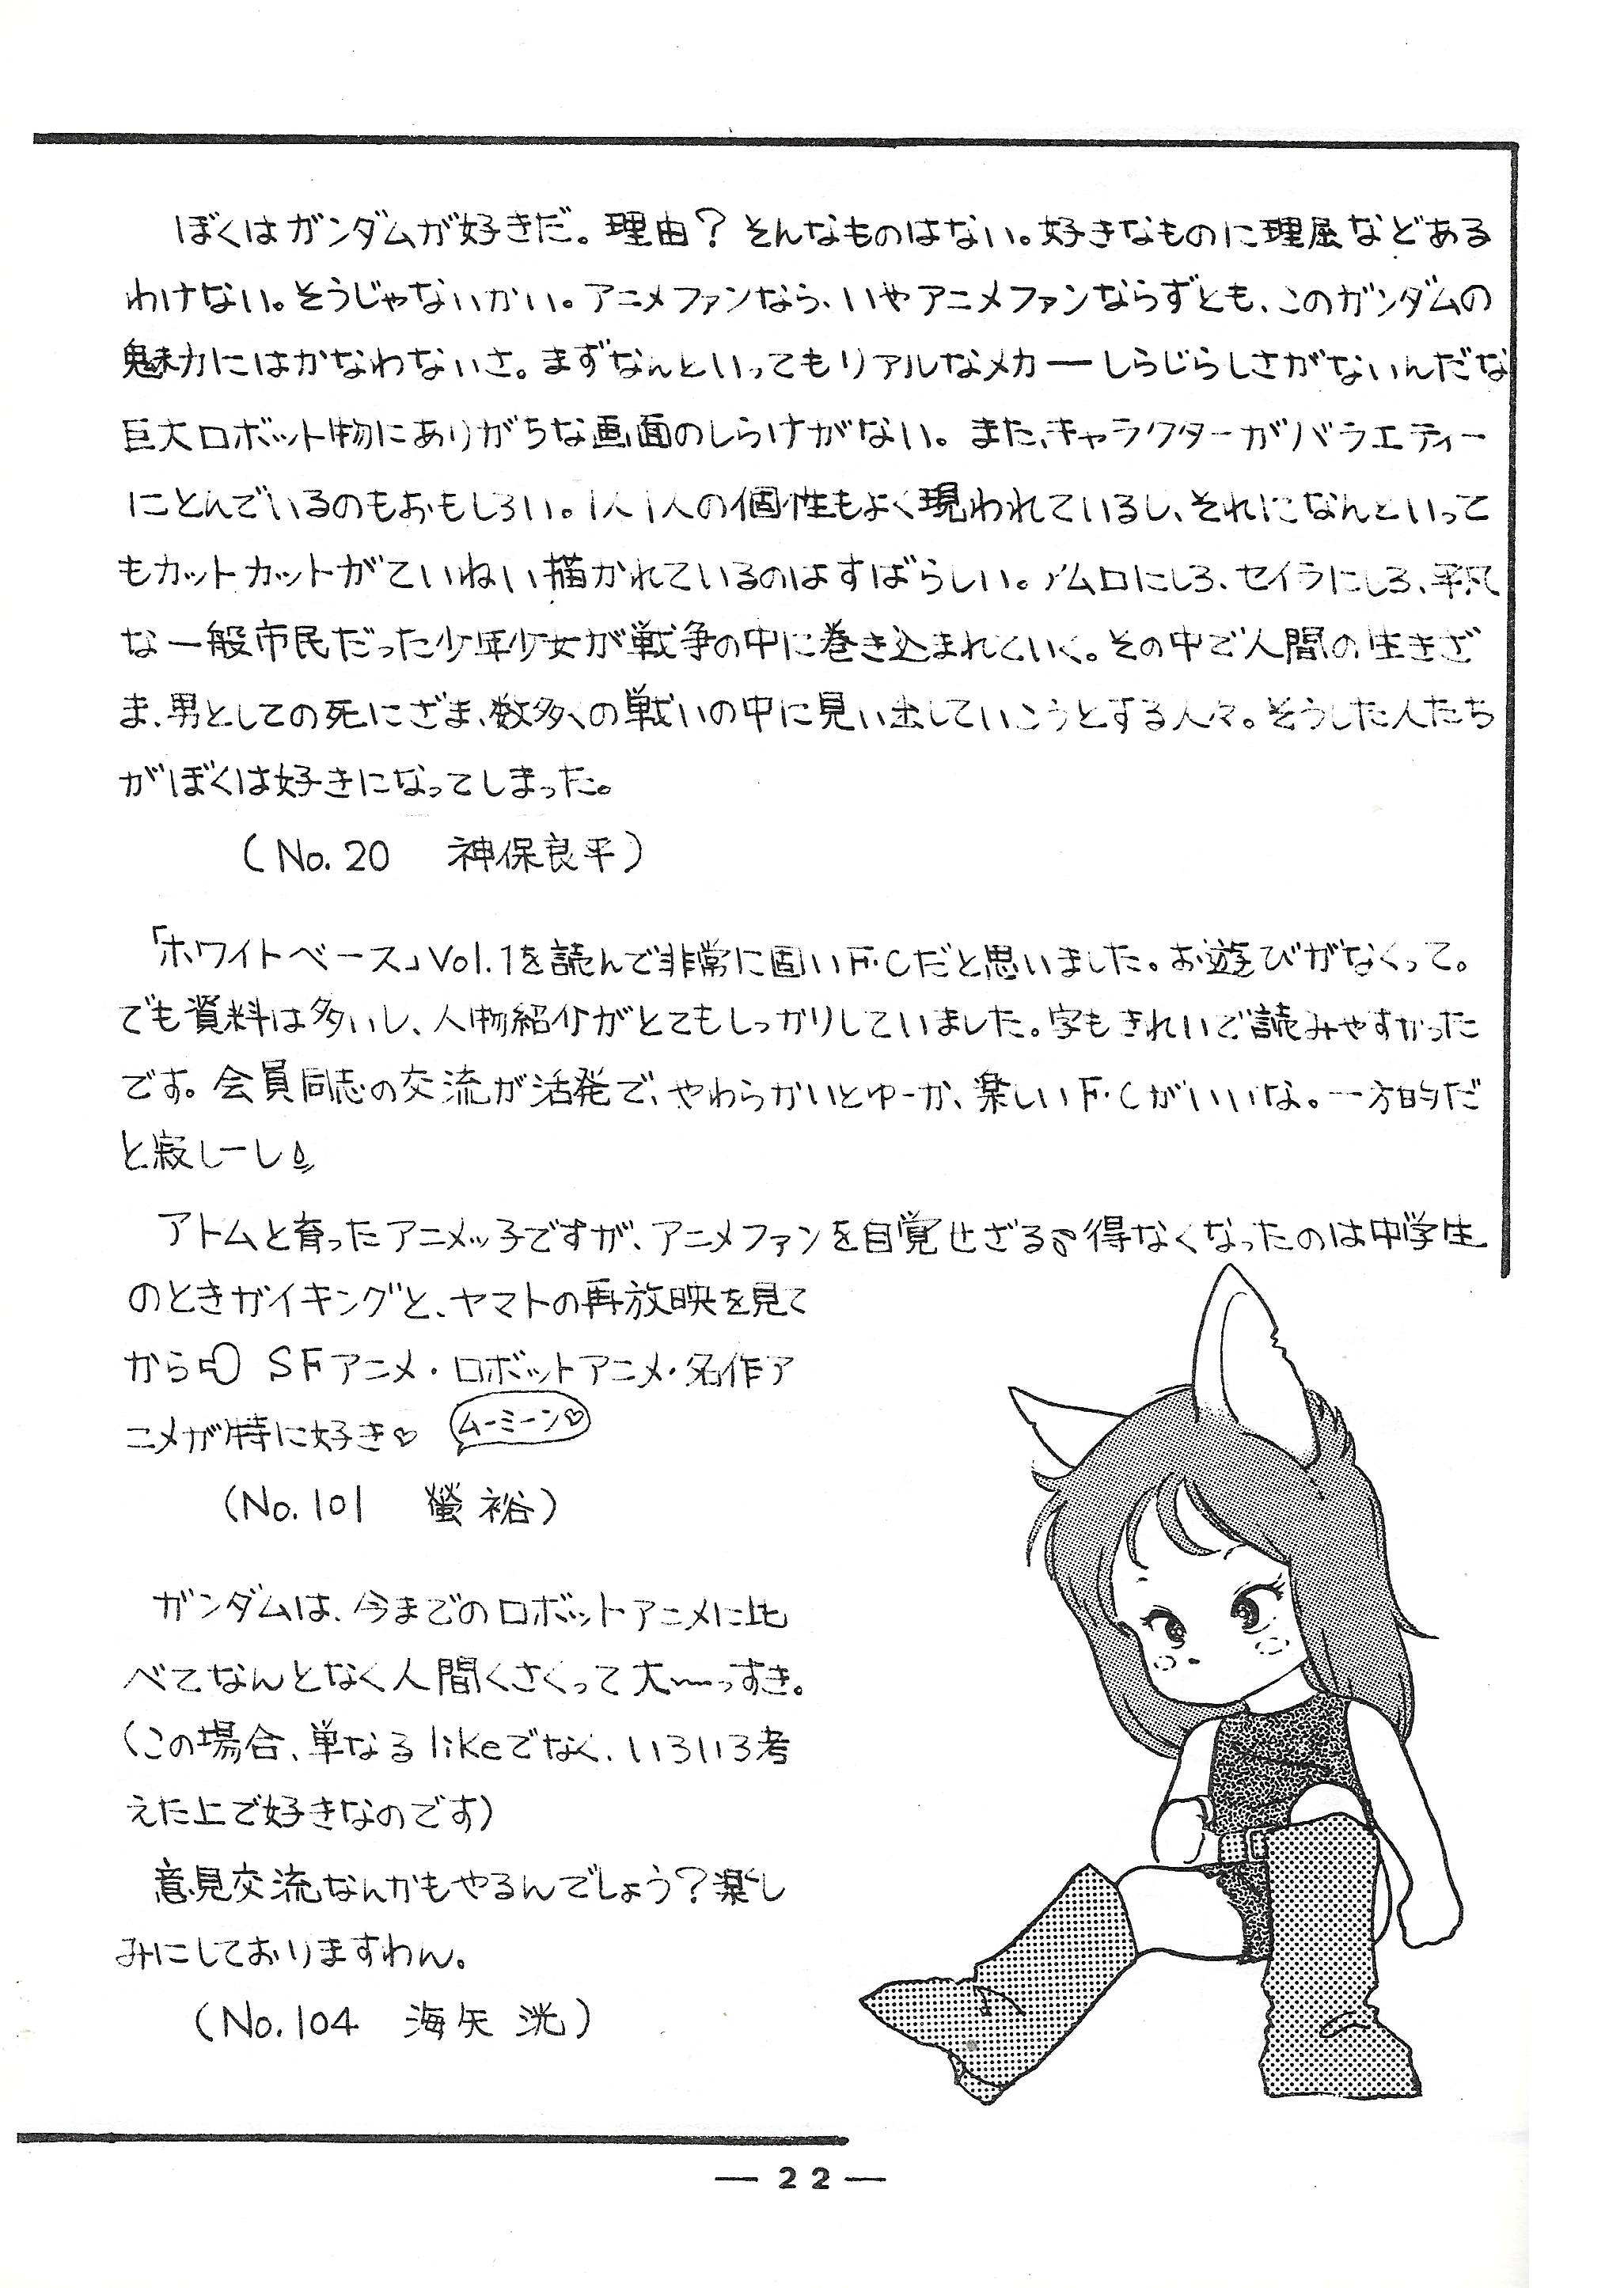 ぼくはガンダムが好きだ。理由？そんなものはない。好きなものに理屈などある
わけない。そうじゃないかい。アニメファンなら、いやアニメファンならずとも、このガンダムの
魅力にはかなわないさ。まずなんといってもリアルなメカ ― しらじらしさがないんだな
巨大ロボット物にありがちな画面のしらけがない。また、キャラクターがバラエティー
にとんでいるのもおもしろい。1人1人の個性もよく現われているし、それになんといって
もカットカットがていねい描かれているのはすばらしい。アムロにしろ、セイラにしろ、平凡
な一般市民だった少年少女が戦争の中に巻き込まれていく。その中で人間の生きざ
ま、男としての死にざま、数多くの戦いの中に見い出していこうとする人々。そうした人たち
がぼくは好きになってしまった。
（No.20　神保良平）
「ホワイトベース」Vol.1を読んで非常に固いF・Cだと思いました。お遊びがなくって。
でも資料は多いし、人物紹介がとてもしっかりしていました。字もきれいで読みやすかった
です。会員同志の交流が活発で、やわらかいとゆーか、楽しいF・Cがいいな。一方的だ
と寂しーし
アトムと育ったアニメッ子ですが、アニメファンを自覚せざるを得なくなったのは中学生
のときガイキングと、ヤマトの再放映を見て
から SFアニメ・ロボットアニメ・名作ア
ニメが特に好き♡ ムーミーン♡
（No.101　螢 裕）
ガンダムは、今までのロボットアニメに比
べてなんとなく人間くさくって大〜っすき。
（この場合、単なるlikeでなく、いろいろ考
えた上で好きなのです）
意見交流なんかもやるんでしょう？楽し
みにしておりますわん。
（No.104　海矢 洸）
— 22 —